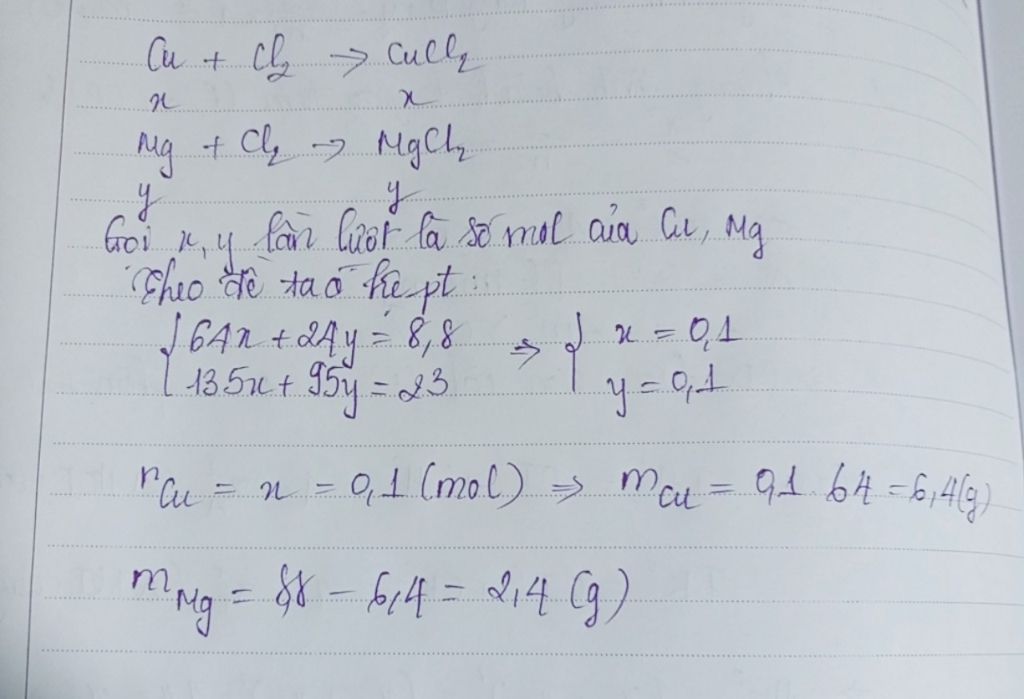 Cu + Cl₂ → CuCl₂
x x
Mg + Cl₂ → MgCl₂
y y
Gọi x, y lần lượt là số mol của Cu, Mg
Theo đề ta có hệ pt:
{ 64x + 24y = 8,8 ⇒ { x = 0,1
{ 135x + 95y = 23 { y = 0,1
n Cu = x = 0,1 (mol) ⇒ m Cu = 0,1 . 64 = 6,4(g)
m Mg = 8,8 – 6,4 = 2,4 (g)